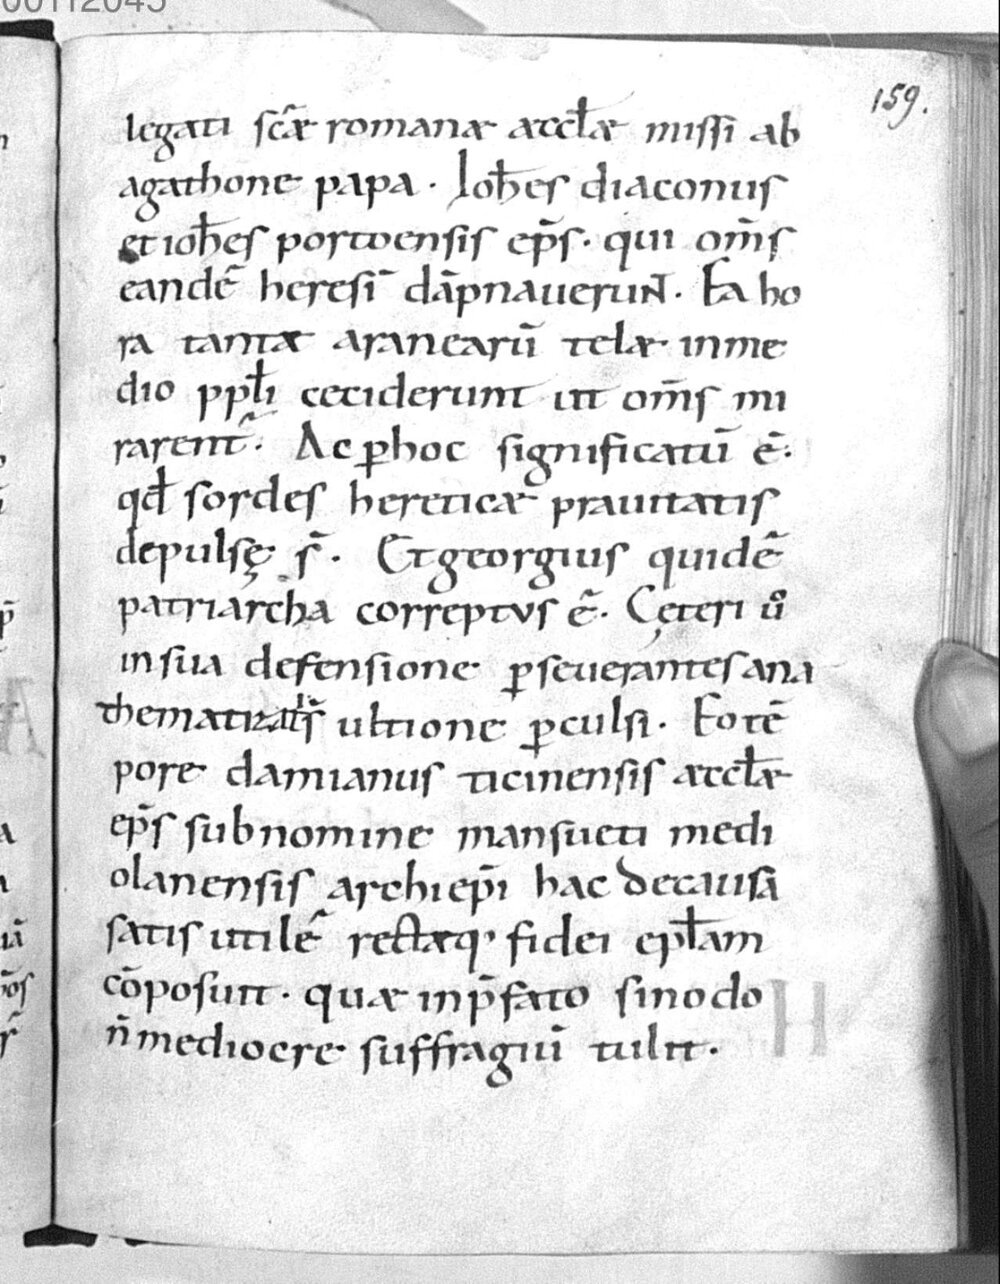 00112045
159.
legati sc̄æ romanæ æccƚæ missi ab
agathone papa · Ioħes diaconus
et ioħes portuensis ep̄s · qui om̄s
eandē heresī dāpnauerunt · Ea ho
ra tantæ aranearū telæ inme
dio ppƚi ceciderunt ut om̄s mi
rarent᷑ · Ac ꝑ hoc significatū ē ·
qđ sordes hereticæ prauitatis
depulsę s̄ · Et georgius quidē
patriarcha correptus ē · Cęteri ů
in sua defensione ꝑseuerantes ana
thematizati s̄ ultione ꝑculsi · Eo tē
pore damianus ticinensis æccƚæ
ep̄s sub nomine mansueti medi
olanensis archiep̄i hac de causā
satis utilē rectæq; fidei epƚam
cōposuit · quæ in p̄fato sinodo
n̄ mediocre suffragiū tulit ·